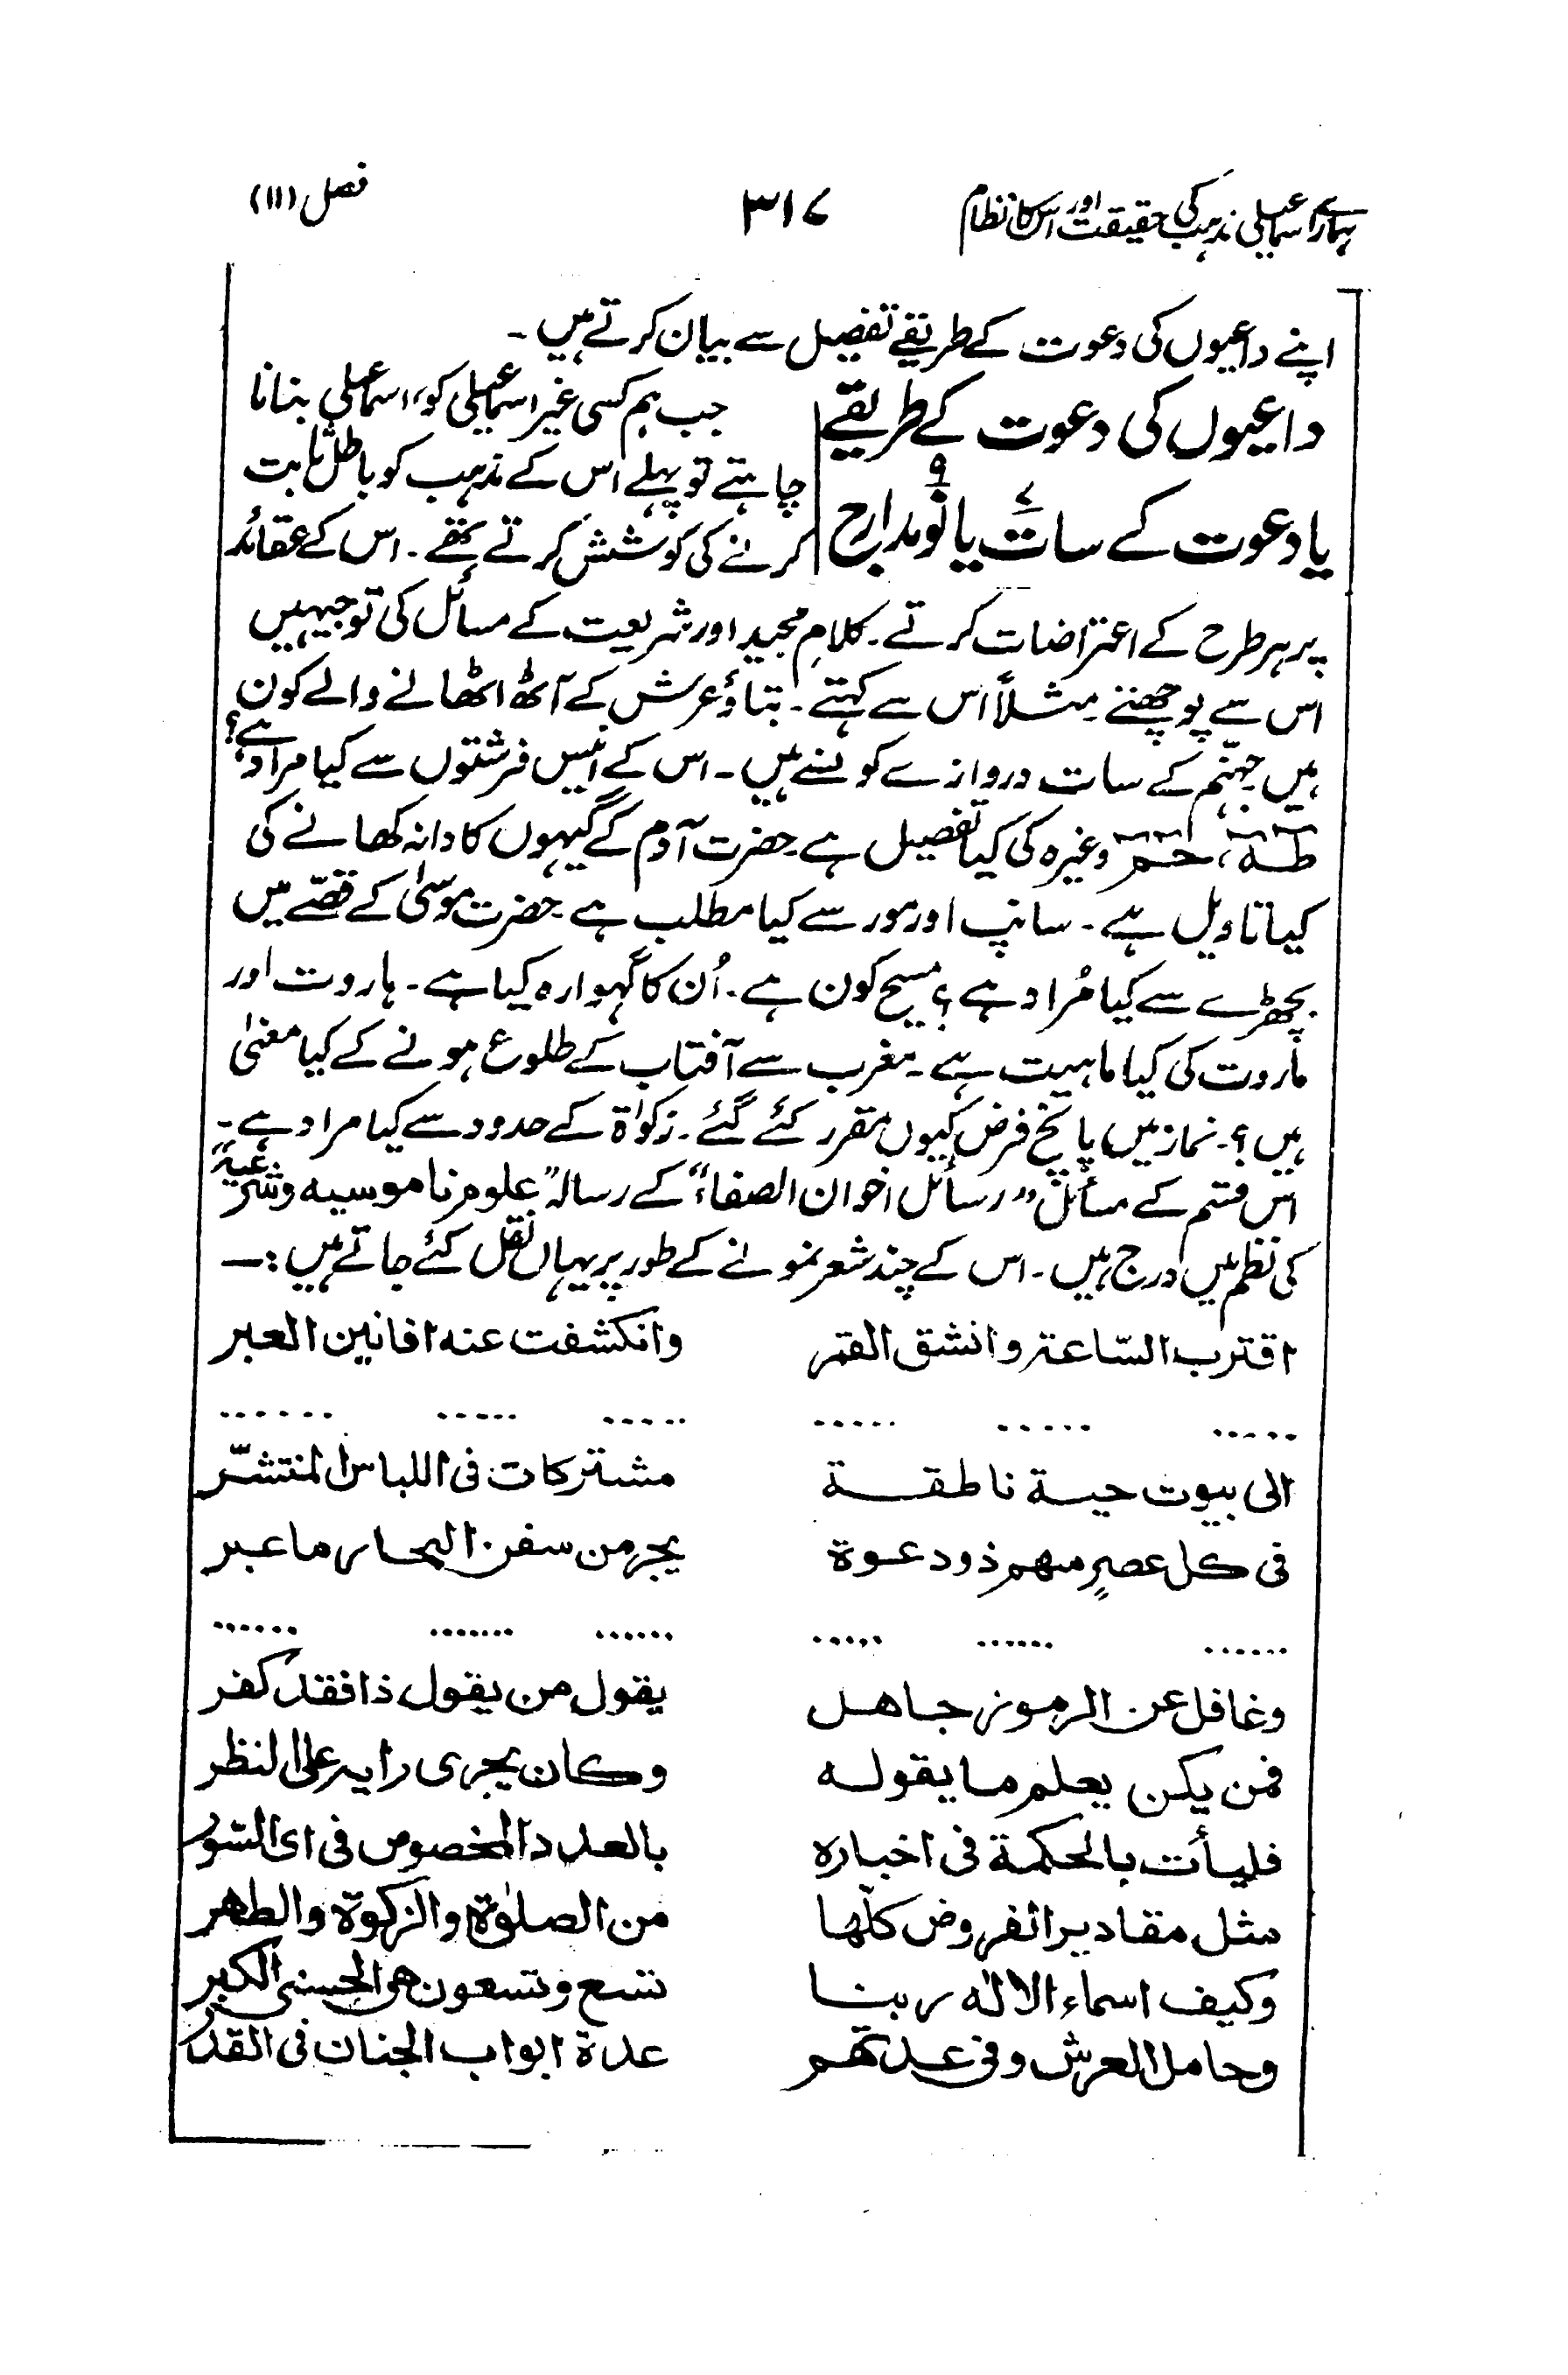 ہمارے اسماعیلی مذہب کی حقیقت اور اس کا نظام ۳۱۷ فصل (۱۱)
اپنے داعیوں کی دعوت کے طریقے تفصیل سے بیان کرتے ہیں ۔
داعیوں کی دعوت کے طریقے
یا دعوت کے سات ۷ یا نو ۹ مدارج
جب ہم کسی غیر اسماعیلی کو، اسماعیلی بنانا
چاہتے تو پہلے اس کے مذہب کو باطل ثابت
کرنے کی کوشش کرتے تھے ۔ اس کے عقائد
پر ہر طرح کے اعتراضات کرتے ۔ کلامِ مجید اور شریعت کے مسائل کی توجیہیں
اس سے پوچھتے مثلاً اس سے کہتے ۔ بتاؤ عرش کے آٹھ اٹھانے والے کون
ہیں جہنّم کے سات دروازے کونسے ہیں ۔ اس کے انیس فرشتوں سے کیا مراد ہے؟
طٰہٰ، حٰمٓ وغیرہ کی کیا تفصیل ہے ۔ حضرت آدم کے گیہوں کا دانہ کھانے کی
کیا تاویل ہے ۔ سانپ اور مور سے کیا مطلب ہے ۔ حضرت موسیٰ کے قصّے میں
بچھڑے سے کیا مُراد ہے ؟ مسیح کون ہے ۔ اُن کا گہوارہ کیا ہے ۔ ہاروت اور
ماروت کی کیا ماہیت ہے ۔ مغرب سے آفتاب کے طلوع ہونے کے کیا معنیٰ
ہیں ؟ ۔ نماز میں پانچ فرض کیوں مقرر کئے گئے ۔ زکوٰۃ کے حدود سے کیا مراد ہے ۔
اس قسم کے مسائل ”رسائل اخوان الصفاء“ کے رسالہ ”علوم ناموسیہ و شرعیہ“
کی نظم میں درج ہیں ۔ اس کے چند شعر نمونے کے طور پر یہاں نقل کئے جاتے ہیں :۔
اقترب السّاعۃ وانشق القمر وانکشفت عنہ افانین العبر
..... ..... ..... ..... ..... ......
الی بیوت حیۃ ناطقۃ مشترکات فی اللباس المنتشّر
فی کل عصرٍ منھم ذو دعوۃ یجر من سفن البحار ما عبر
...... ...... ..... ...... ....... ......
وغافل عن الرموز جاھل یقول من یقول ذا فقد کفر
فمن یکن یعلم ما یقولہ وکان یجری رایہ علی النظر
فلیأت بالحکمۃ فی اخبارہ بالعدد المخصوص فی ای السور
مثل مقادیر الفروض کلّھا من الصلوٰۃ والزکوۃ والطھر
وکیف اسماء الالٰہ ربنا تسع وتسعون ھی الحسنی الکبر
وحامل العرش وفی عدتھم عدۃ ابواب الجنان فی القدر